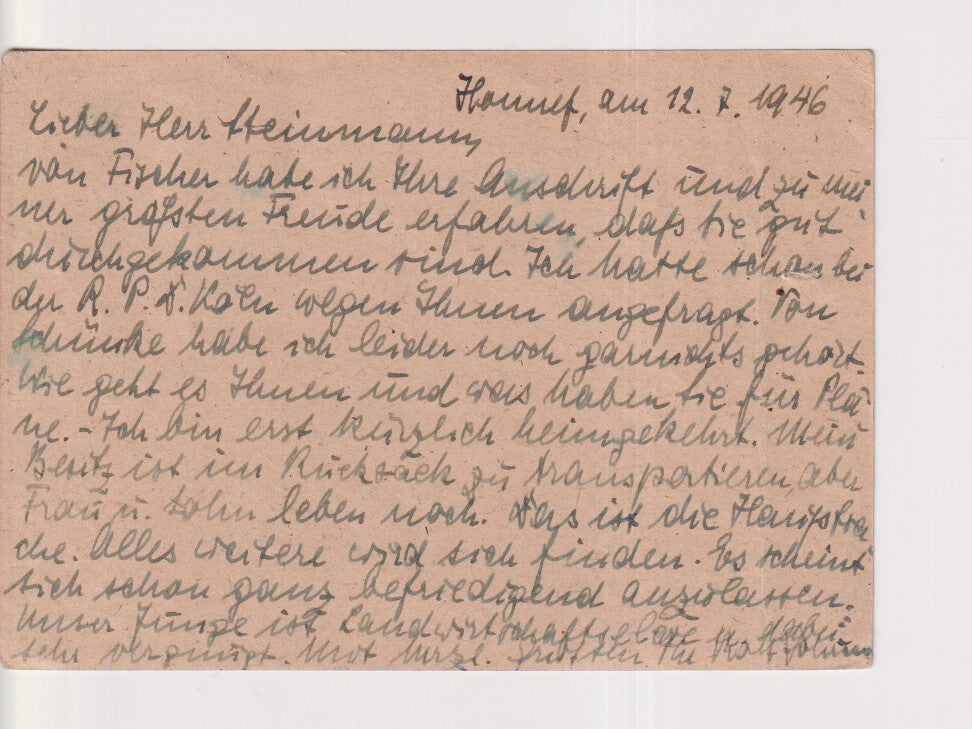 Honnef, am 12. 7. 1946
Lieber Herr Steinmann,
von Fischer habe ich Ihre Anschrift und zu mei
ner größten Freude erfahren, daß Sie gut
durchgekommen sind. Ich hatte schon bei
der R. P. D. Köln wegen Ihnen angefragt. Von
Schünke habe ich leider noch garnichts gehört.
Wie geht es Ihnen und was haben Sie für Plä
ne. - Ich bin erst kürzlich heimgekehrt. Mein
Besitz ist im Rucksack zu transportieren, aber
Frau u. Sohn leben noch. Das ist die Hauptsa
che. Alles weitere wird sich finden. Es scheint
sich schon ganz befriedigend anzulassen.
Unser Junge ist Landwirtschaftseleve u. dabei
sehr vergnügt. Mit herzl. Grüßen Ihr